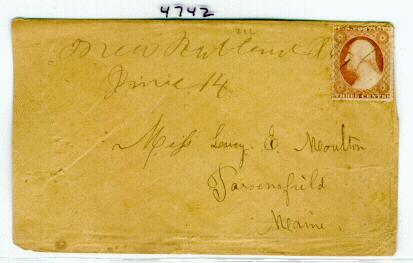 4742
New Portland
June 14
THREE CENTS
Miss Lucy E. Moulton
Parsonsfield
Maine.